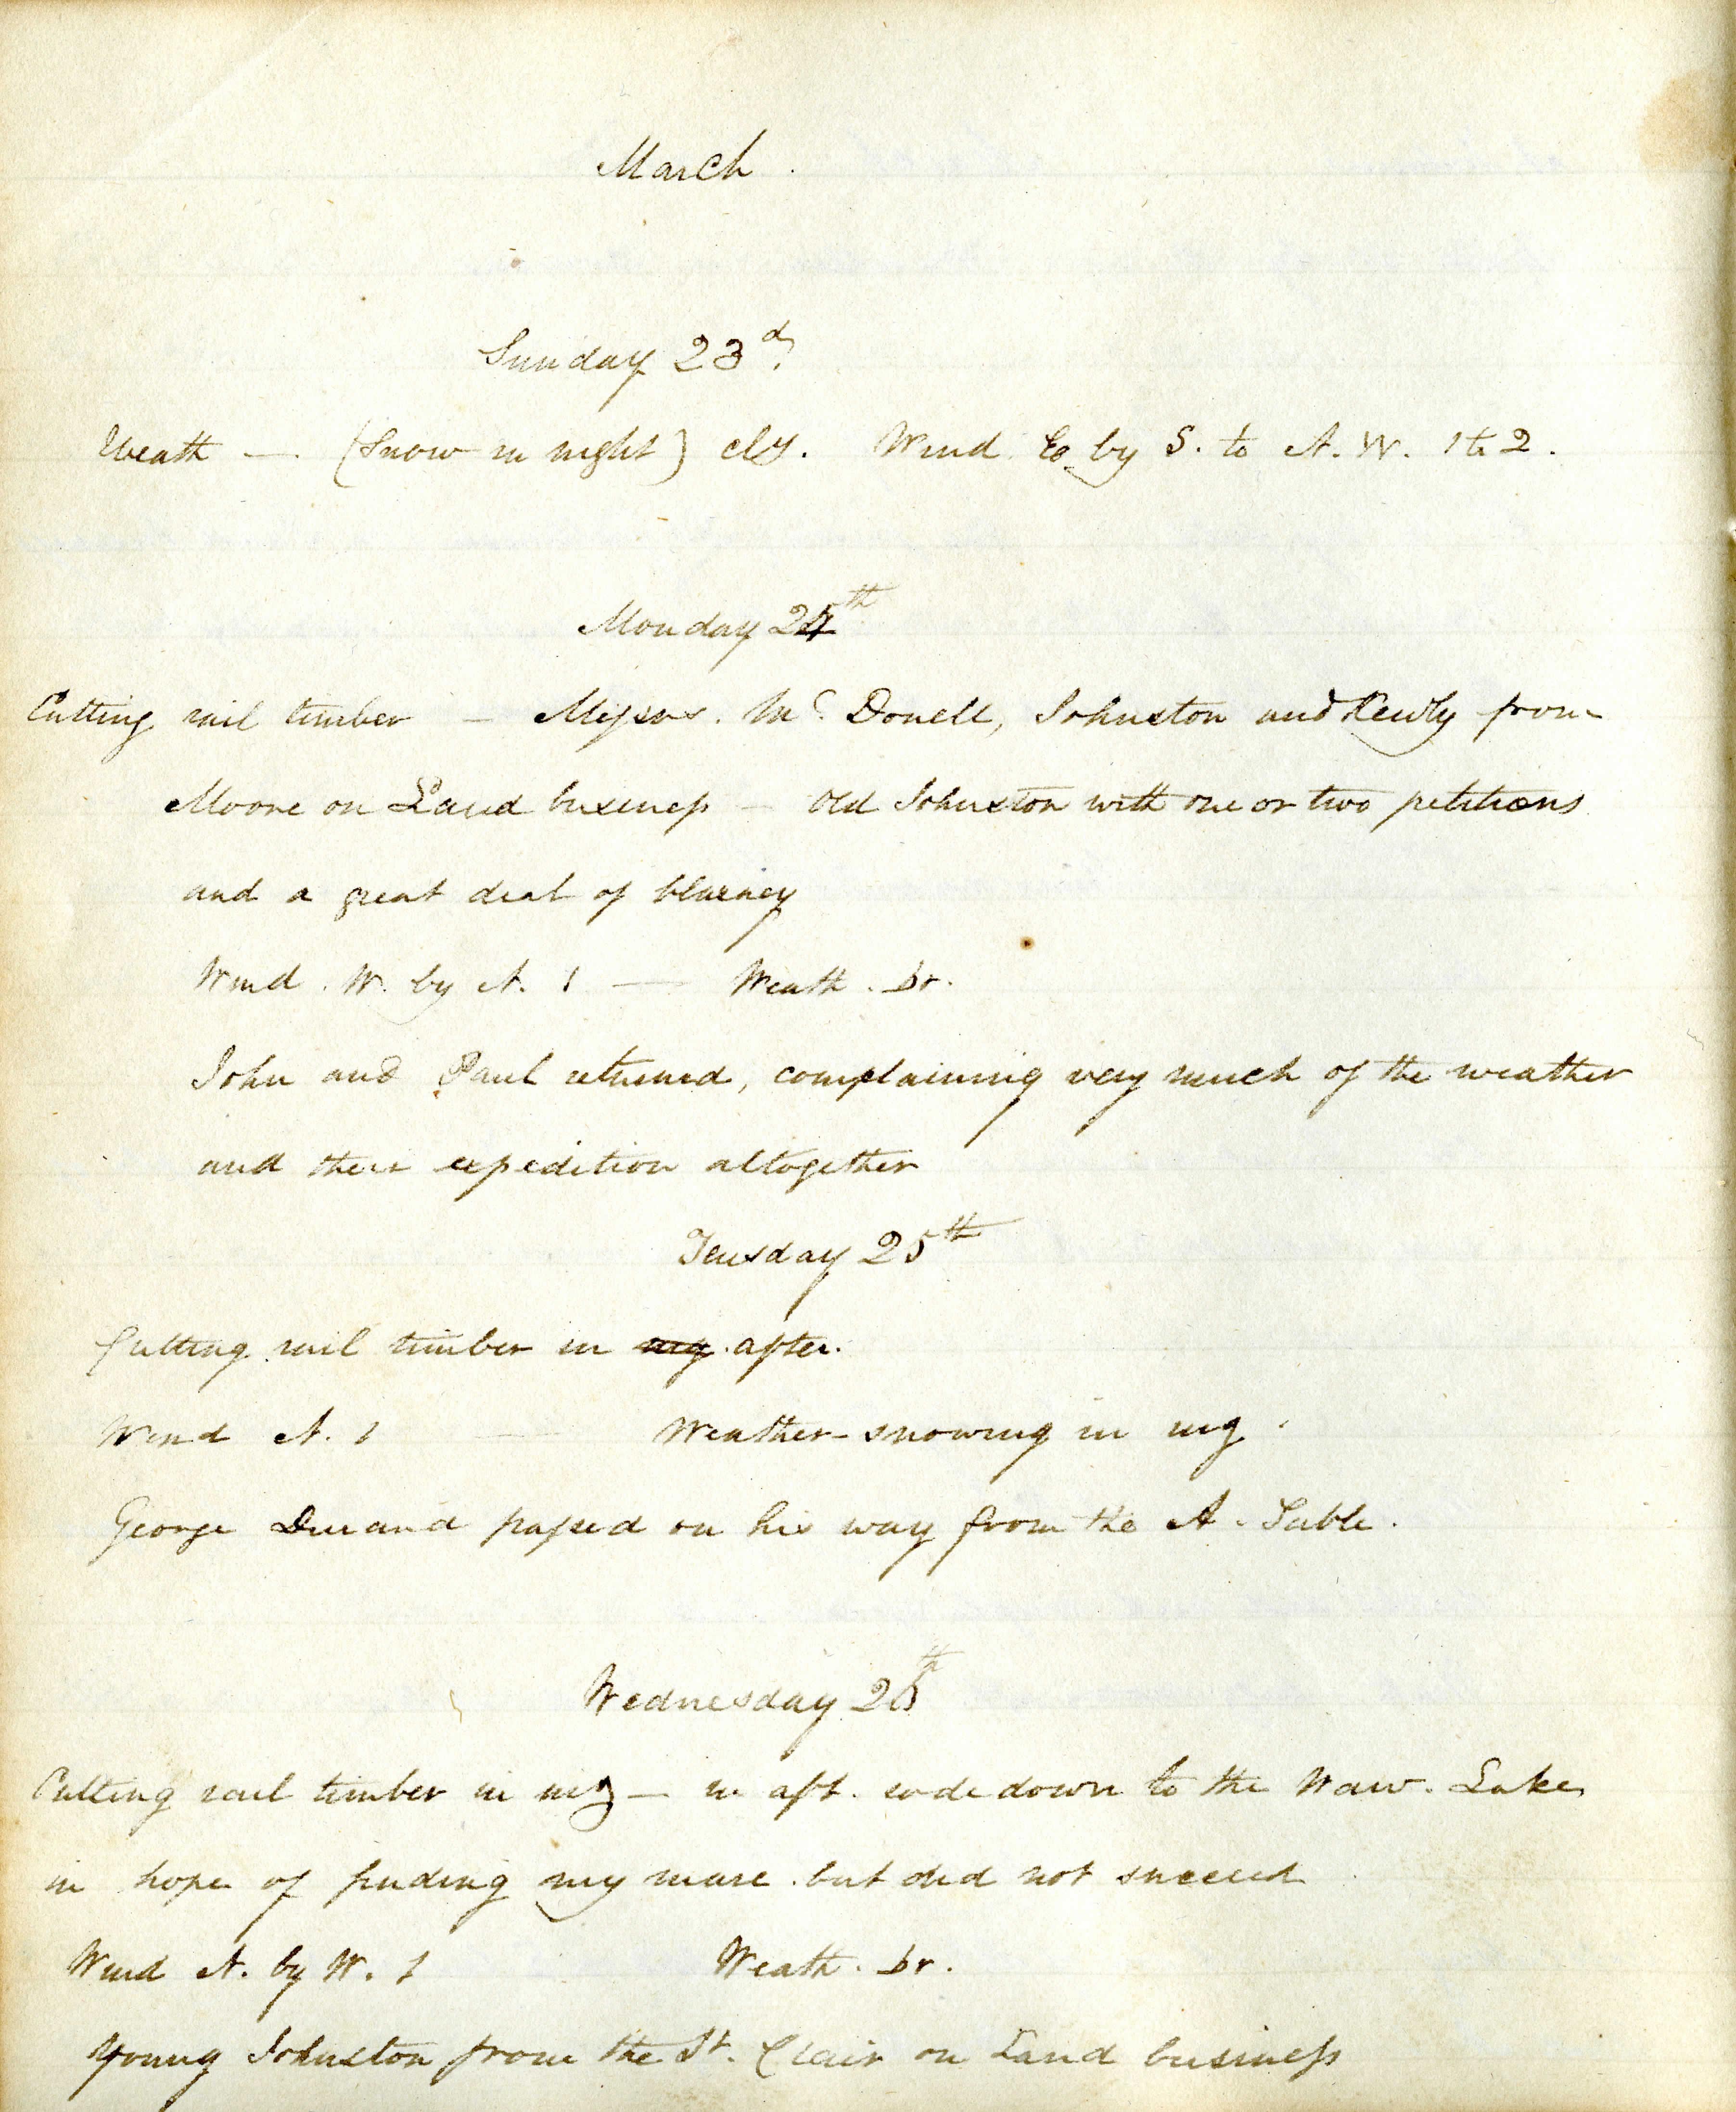 March.
Sunday 23d.
Weath — (Snow in night) cly. Wind E. by S. to N.W. 1 to 2.
Monday 24th
Cutting rail timber — Messrs. Mc. Donell, Johnston and from
Moore on Land business — Old Johnston with one or two petitions
and a great deal of blarney
Wind. W. by N. 1 — Weath. br.
John and Paul returned, complaining very much of the weather
and their expedition altogether
Teusday 25th
Cutting rail timber in mg. after.
Wind N. 1 — Weather - snowing in mg.
George Durand passed on his way from the A. Sable.
Wednesday 26th
Cutting rail timber in mg — in aft. rode down to the Waw. Lake
in hope of finding my mare. but did not succeed
Wind N. by W. 1 Weath. br.
Young Johnston from the St. Clair on Land business